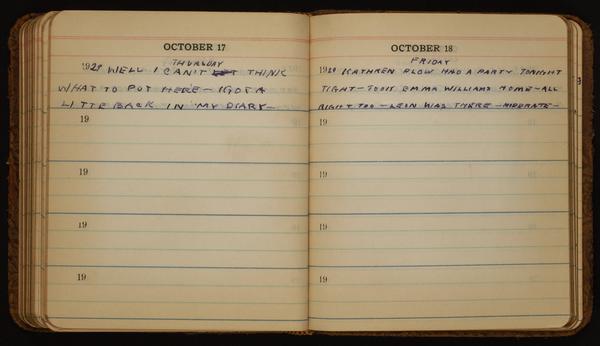 OCTOBER 17
THURSDAY
1929 WELL I CAN'T THINK
WHAT TO PUT HERE - I GOT A
LITTE BACK IN MY DIARY -
19
19
19
19
OCTOBER 18
FRIDAY
1929 KATHREN PLOW HAD A PARTY TONIGHT
TIGHT - TOOK EMMA WILLIAMS HOME - ALL
RIGHT TOO - LEON WAS THERE - MODERATE -
19
19
19
19